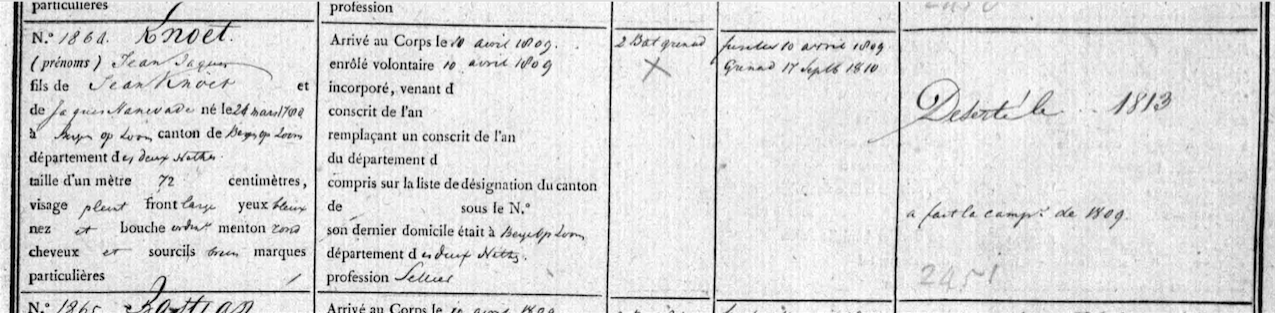 particulières
N.° 1864. Knoet.
(prénoms) Jean Jaques
fils de Jean Knoet et
de né le 24 mars
à Berg op Zoom canton de Berg op Zoom
département des deux Nèthes
taille d'un mètre 72 centimètres,
visage plein front large yeux bleux
nez et bouche menton rond
cheveux et sourcils brun marques
particulières
N.° 1865
profession
Arrivé au Corps le 10 avril 1809.
enrôlé volontaire 10 avril 1809
incorporé, venant d
conscrit de l'an
remplaçant un conscrit de l'an
du département d
compris sur la liste de désignation du canton
de sous le N.°
son dernier domicile était à Berg op Zoom
département des deux Nèthes
profession Sellier
Arrivé au Corps le 10 avril 1809
2 Bat grenad
X
fusilier 10 avril 1809
Grenad 17 Septb 1810
Deserté le 1813
a fait la camp.e de 1809.
2451